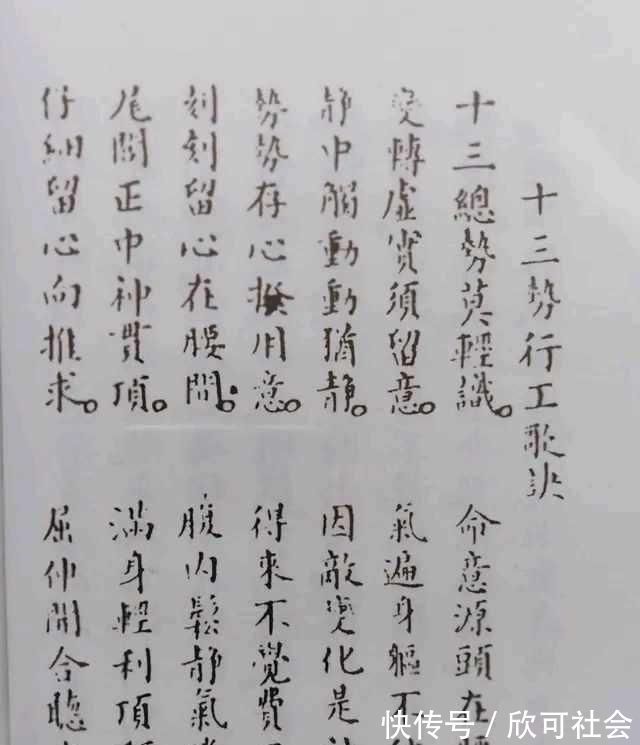 十三勢行工歌訣
十三總勢莫輕識。 命意源頭在
變轉虛實須留意。 氣遍身軀不
静中觸動動猶静。 因敵變化是
勢勢存心揆用意。 得來不覺費
刻刻留心在腰間。 腹内鬆静氣
尾閭正中神貫頂。 滿身輕利頂
仔細留心向推求。 屈伸開合聽
快传号/欣可社会